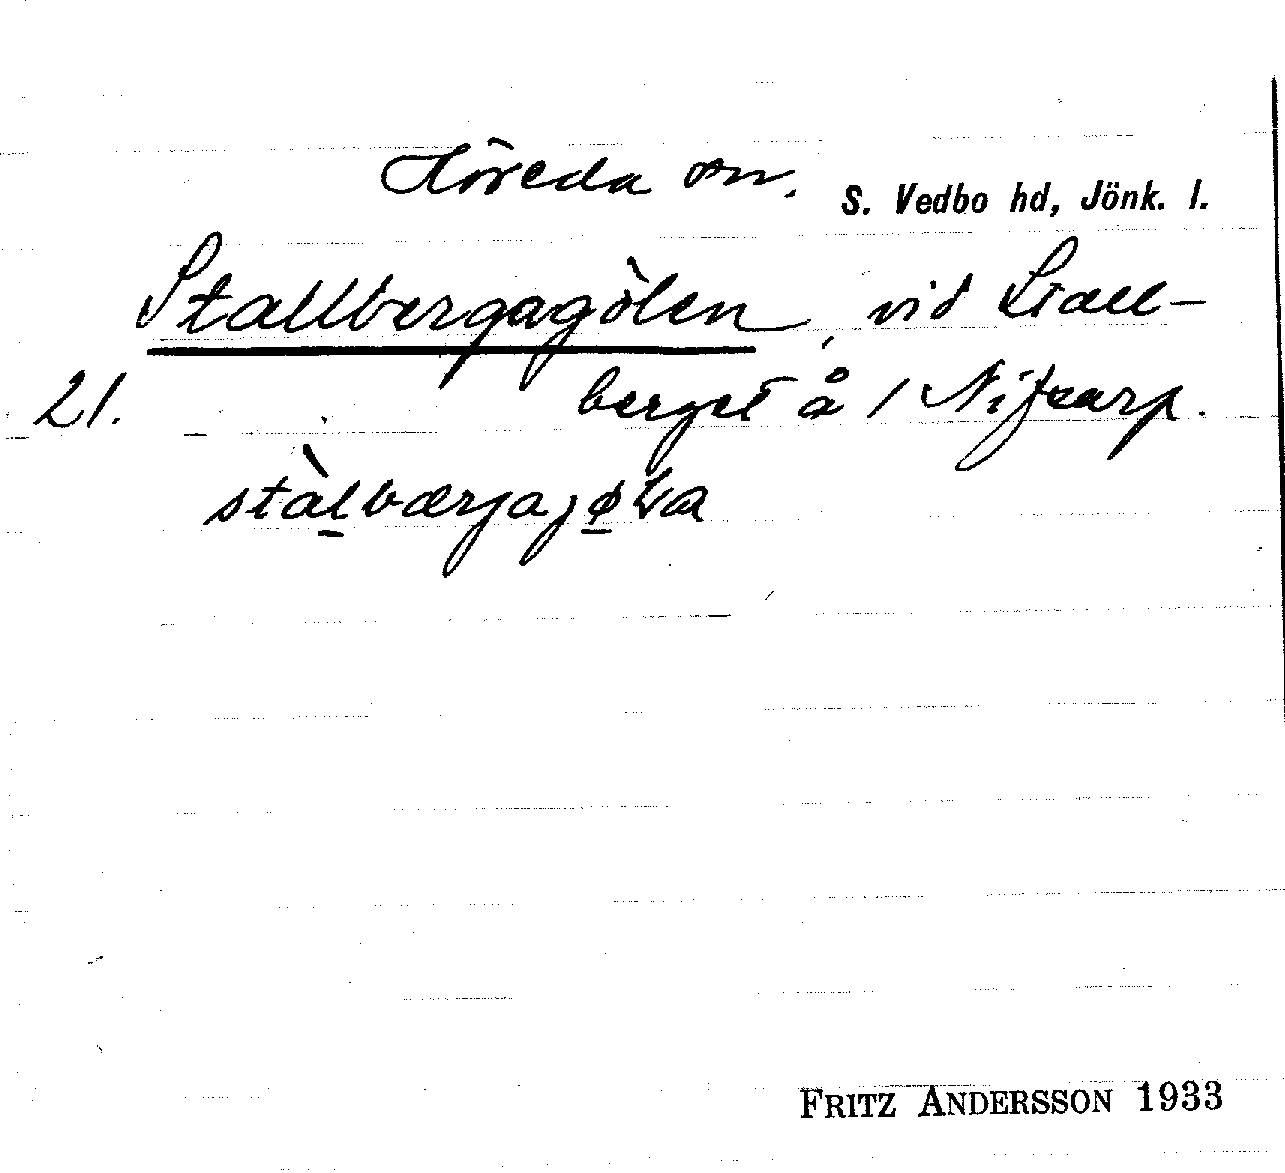 Höreda sn. S. Vedbo hd, Jönk. l.
Stallbergagölen, vid Stall-
21. berget å 1 Nifkarp.
stàlbærjajøLa
FRITZ ANDERSSON 1933